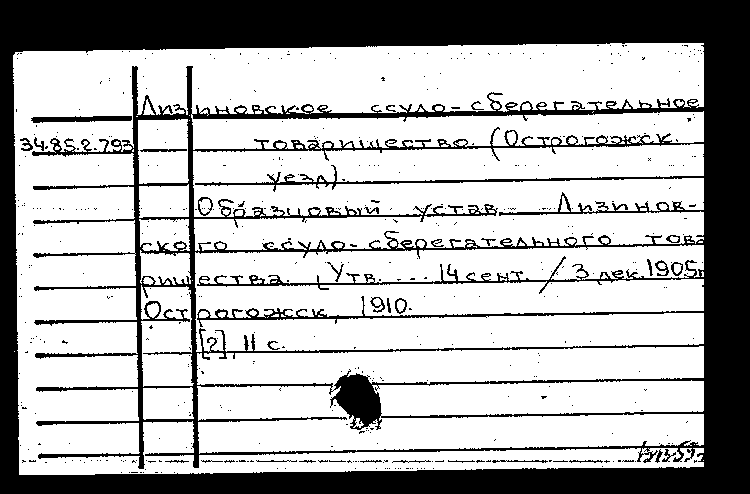 Лизиновское ссудо-сберегательное
34.85.2.793 товарищество. (Острогожск.
уезд).
Образцовый устав Лизинов-
ского ссудо-сберегательного това
рищества. [Утв. ... 14 сент. / 3 дек. 1905г
Острогожск, 1910.
[2], 11 с.